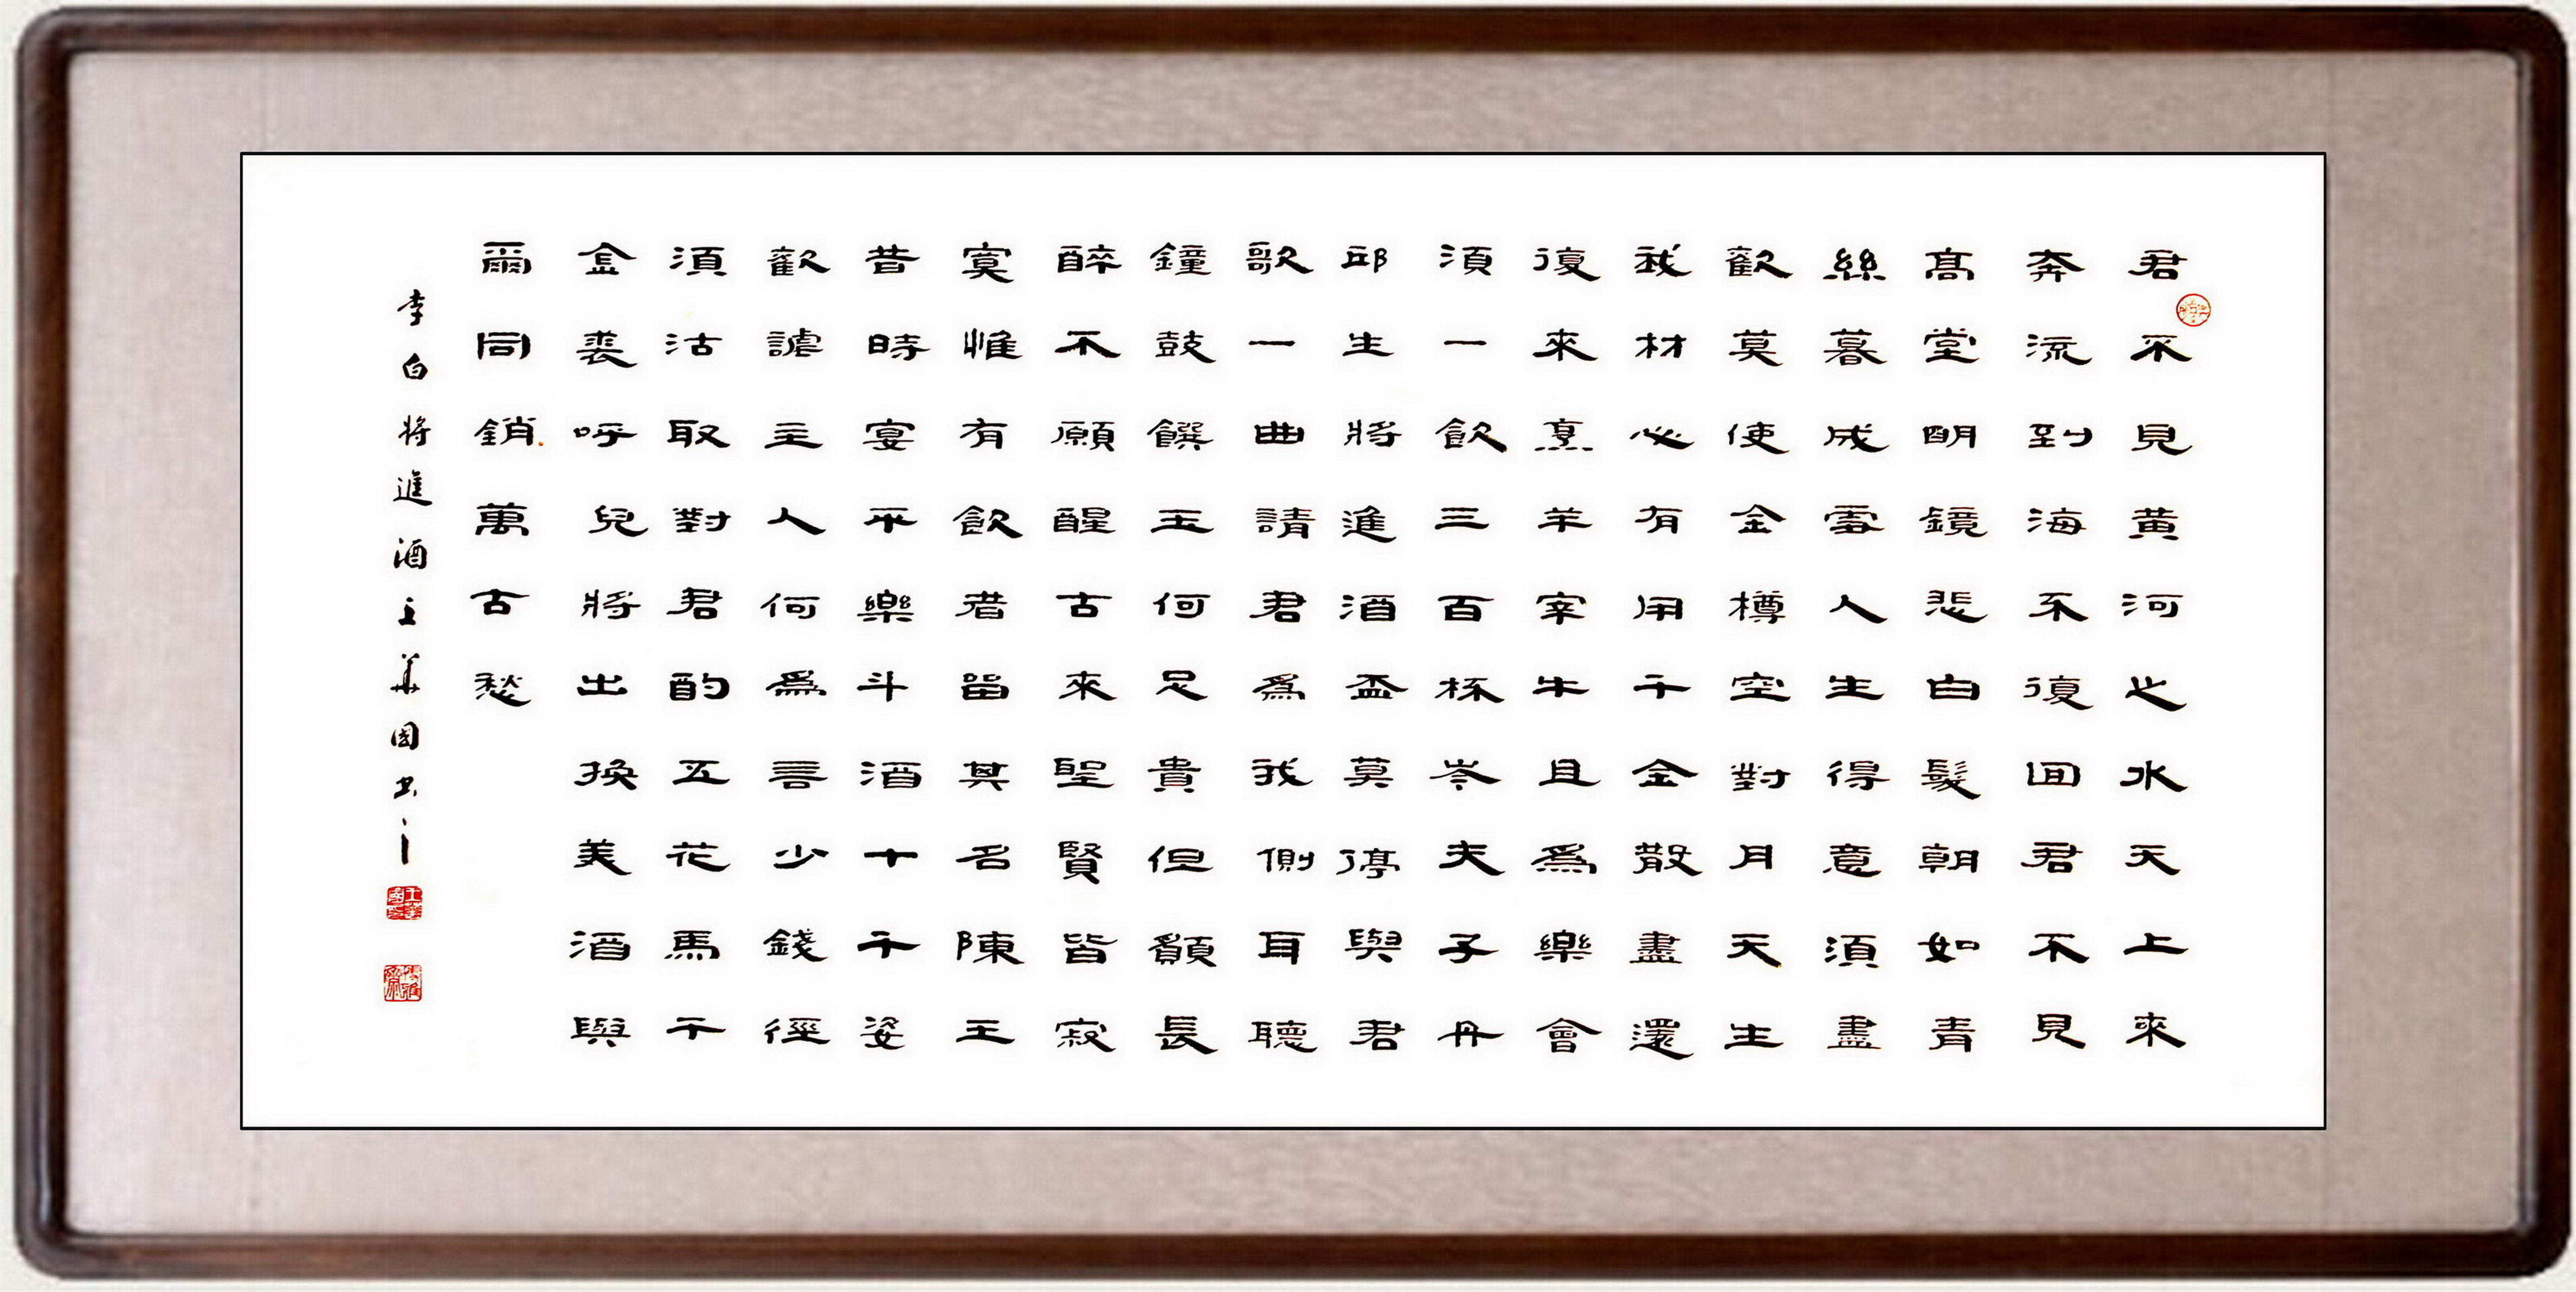 君不見黃河之水天上來
奔流到海不復囬君不見
髙堂明鏡悲白髮朝如青
絲暮成雪人生得意須盡
歡莫使金樽空對月天生
我材必有用千金散盡還
復來烹羊宰牛且爲樂會
須一飲三百杯岑夫子丹
邱生將進酒盃莫停與君
歌一曲請君爲我側耳聽
鐘鼓饌玉何足貴但願長
醉不願醒古來聖賢皆寂
寞惟有飲者留其名陳王
昔時宴平樂斗酒十千姿
歡謔主人何爲言少錢徑
須沽取對君酌五花馬千
金裘呼兒將出換美酒與
爾同銷萬古愁
李白将進酒王華国书